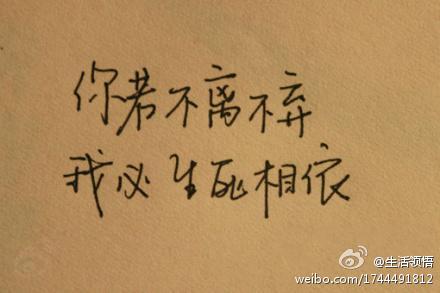 你若不离不弃
我必生死相依
@生活领悟
weibo.com/1744491812